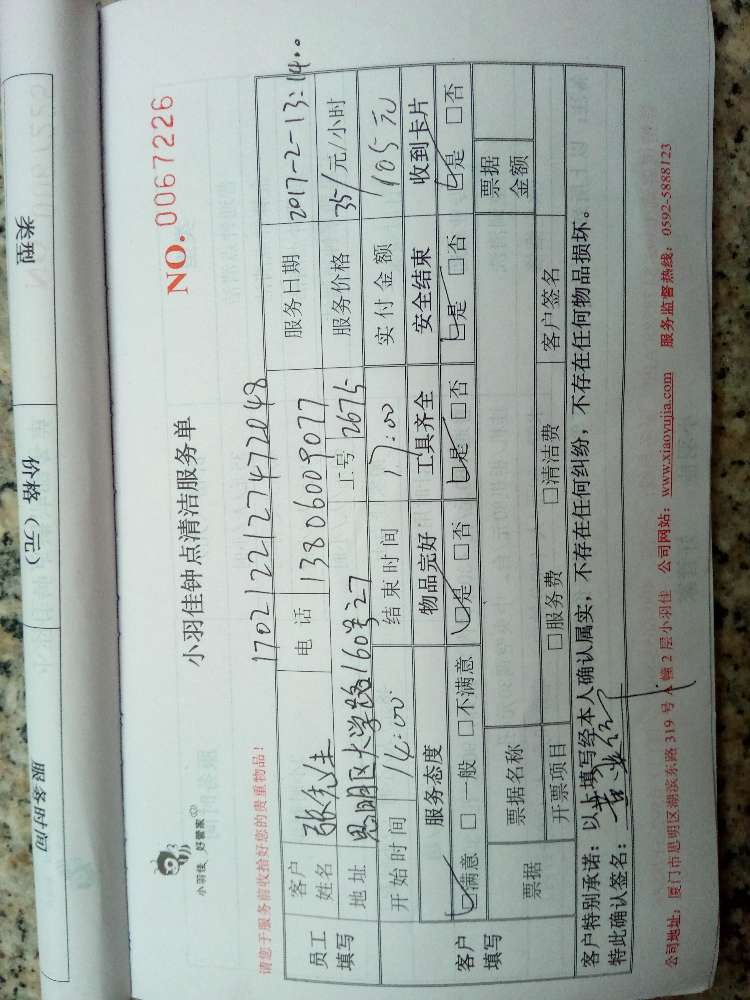 类型
价格（元）
服务时间
小羽佳 好管家
小羽佳钟点清洁服务单
NO. 0067226
请您于服务前收拾好您的贵重物品！
1702122127472048
员工填写
客户姓名 张先生 电话 13806009077 服务日期 2017-2-13:14..
地址 思明区大学路160号27 工号 2675 服务价格 35/元/小时
开始时间 14:00 结束时间 17:00 实付金额 105元
客户填写
服务态度 物品完好 工具齐全 安全结束 收到卡片
☑满意 □一般 □不满意 ☑是 □否 ☑是 □否 ☑是 □否 ☑是 □否
票据 票据名称 票据金额
开票项目 □服务费 □清洁费 客户签名
客户特别承诺：以上填写经本人确认属实，不存在任何纠纷，不存在任何物品损坏。
特此确认签名：
公司地址：厦门市思明区湖滨东路319号A幢2层小羽佳 公司网站：www.xiaoyujia.com 服务监督热线：0592-5888123